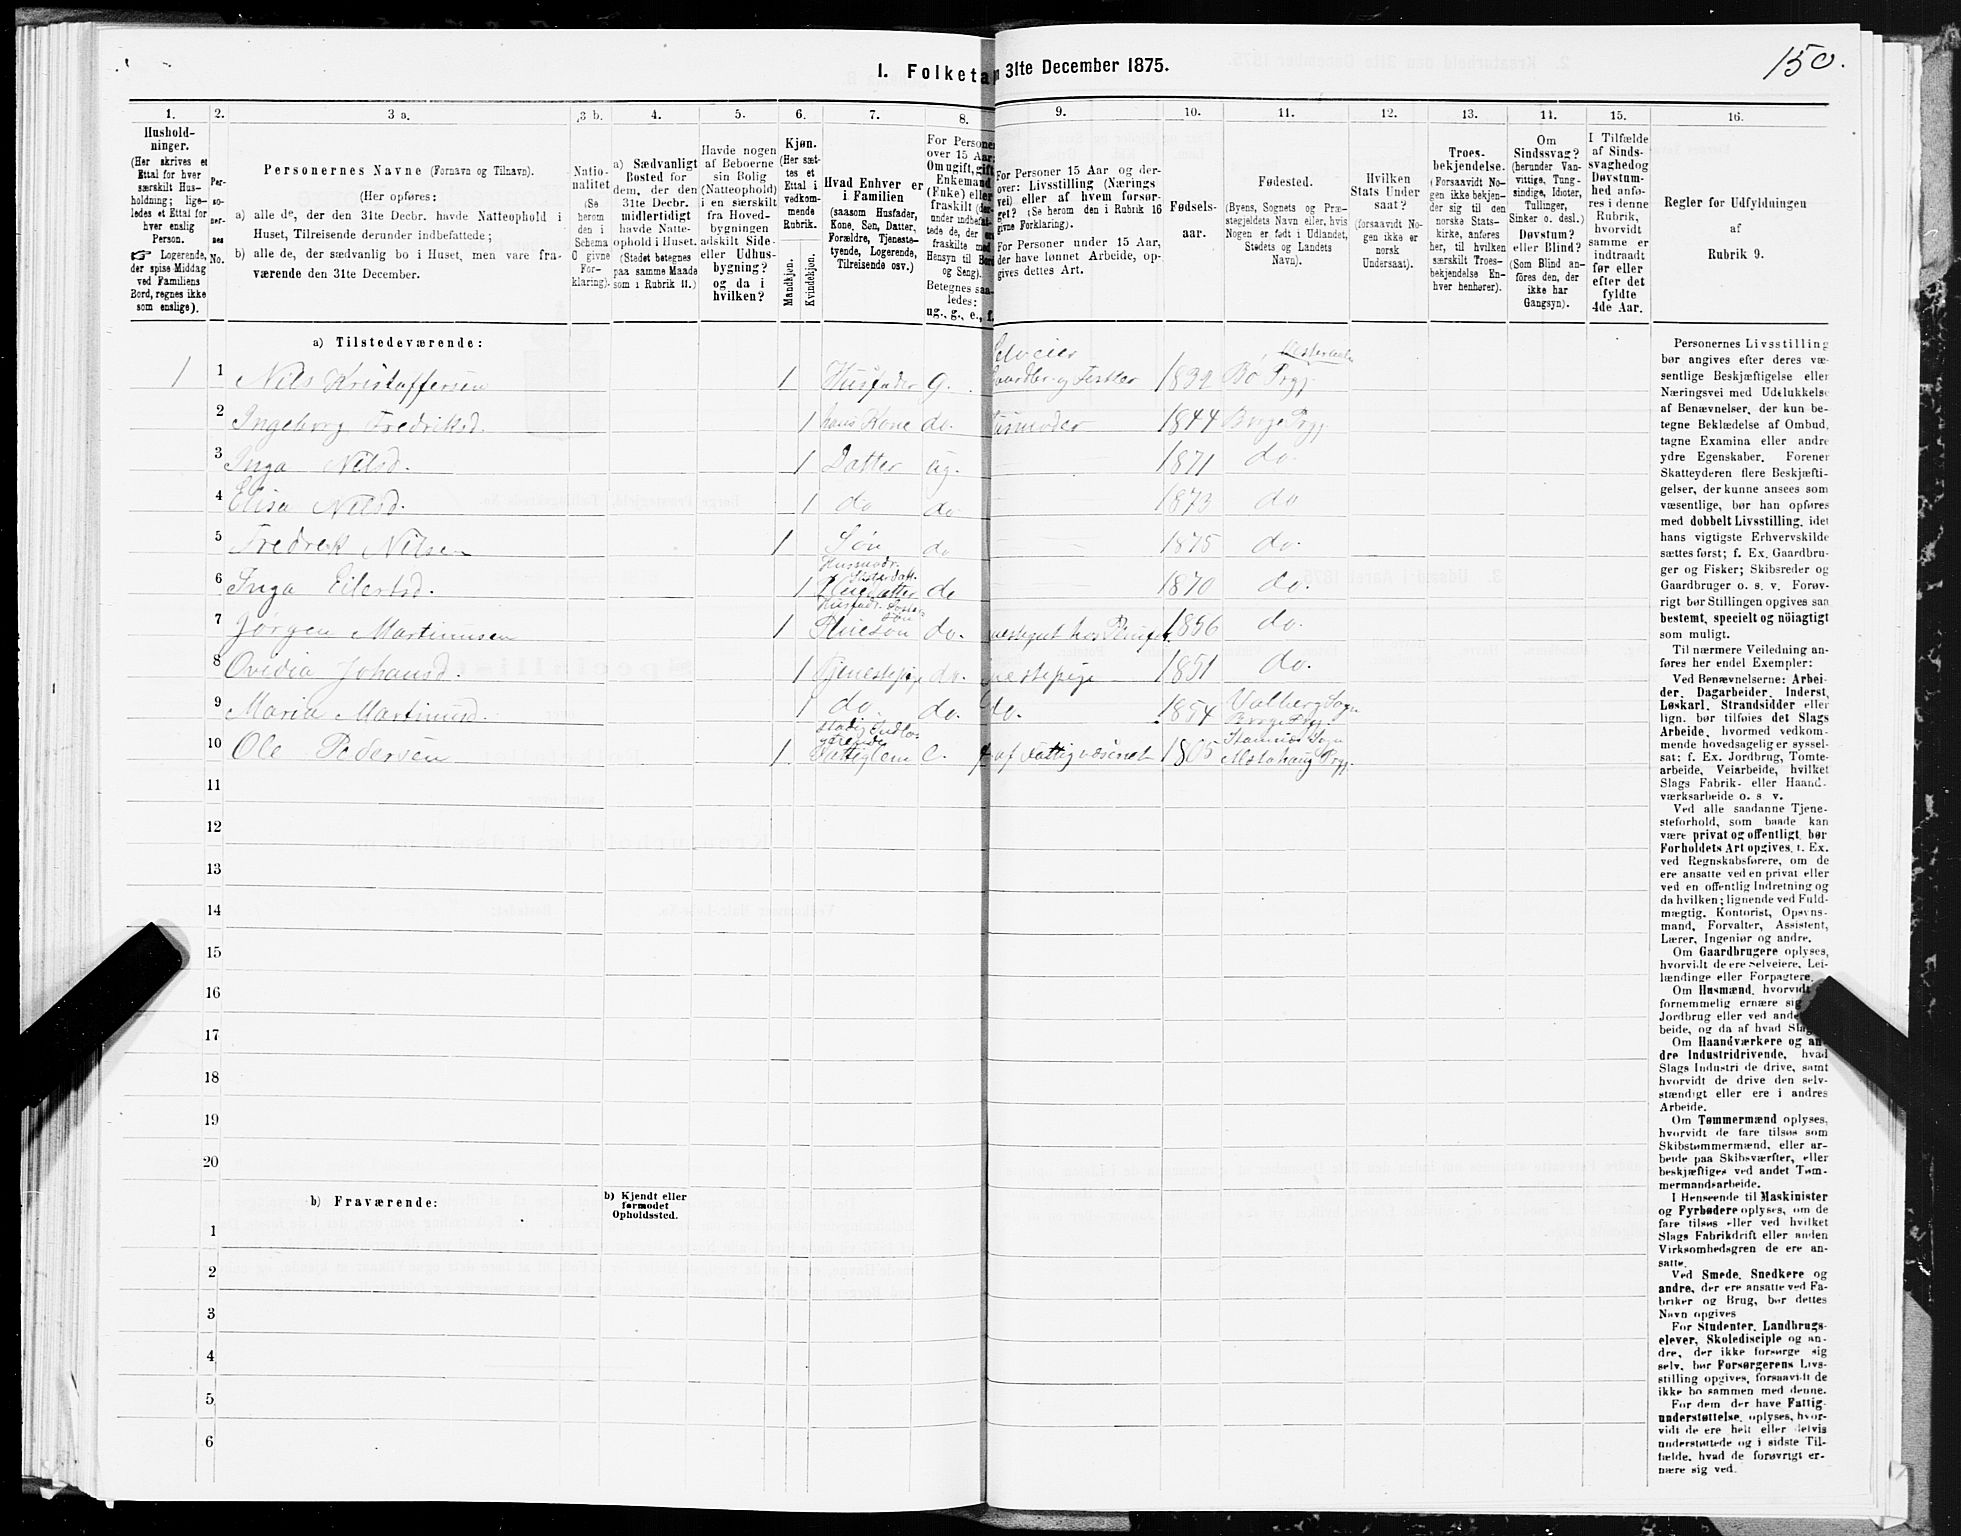 150.
I. Folketæ 31te December 1875.
1. 2. 3 a. 3 b. 4. 5. 6. 7. 8. 9. 10. 11. 12. 13. 14. 15. 16.
Hushold-
ninger.
(Her skrives et
Ettal for hver
særskilt Hus-
holdning; lige-
ledes et Ettal for
hver enslig
Person.
☞ Logerende,
der spise Middag
ved Familiens
Bord, regnes ikke
som enslige).
Per-
so-
ner-
nes
No.
Personernes Navne (Fornavn og Tilnavn).
(Her opføres:
a) alle de, der den 31te Decbr. havde Natteophold i
Huset, Tilreisende derunder indbefattede;
b) alle de, der sædvanlig bo i Huset, men vare fra-
værende den 31te December.
Natio-
nalitet
(Se
herom
den i
Schema
O givne
For-
klaring).
a) Sædvanligt
Bosted for
dem, der den
31te Decbr.
midlertidigt
havde Natte-
ophold i Huset.
(Stedet betegnes
paa samme Maade
som i Rubrik 11.)
Havde nogen
af Beboerne
sin Bolig
(Natteophold)
i en særskilt
fra Hoved-
bygningen
adskilt Side-
eller Udhus-
bygning?
og da i
hvilken?
Kjøn.
(Her sæt-
tes et
Ettal i
vedkom-
mende
Rubrik.
Mandkjøn.
Kvindekjøn.
Hvad Enhver er
i Familien
(saasom Husfader,
Kone, Søn, Datter,
Forældre, Tjeneste-
tyende, Logerende,
Tilreisende osv.)
For Persone
over 15 Aar:
Om ugift, gift,
Enkemand
(Enke) eller
fraskilt (der-
under indbefat-
tede de, der ere
fraskilte med
Hensyn til Bord
og Seng).
Betegnes saa-
ledes:
ug., g., e., f.
For Personer 15 Aar og der-
over: Livsstilling (Nærings
vei) eller af hvem forsør-
get? (Se herom den i Rubrik 16
givne Forklaring).
For Personer under 15 Aar,
der have lønnet Arbeide, op-
gives dettes Art.
Fødsels-
aar.
Fødested.
(Byens, Sognets og Præ-
stegjeldets Navn eller, hvis
Nogen er født i Udlandet,
Stedets og Landets
Navn).
Hvilken
Stats Under
saat?
(forsaavidt No-
gen ikke er
norsk
Undersaat).
Troes-
bekjendelse.
(Forsaavidt No-
gen ikke bekjen-
der sig til den
norske Stats-
kirke, anføres
her, til hvilken
særskilt Troes-
bekjendelse En-
hver henhører).
Om
Sindssvag?
(herunder Van-
vittige, Tung-
sindige, Idioter,
Tullinger,
Sinker o. desl.)
Døvstum?
eller Blind?
(Som Blind an-
føres den, der
ikke har
Gangsyn).
I Tilfælde
af Sinds-
svaghed og
Døvstum-
hed anfø-
res i denne
Rubrik,
hvorvidt
samme er
indtraadt
før eller
efter det
fyldte
4de Aar.
Regler før Udfyldningen
af
Rubrik 9.
a) Tilstedeværende:
Selveier
1 1 Nils Kristoffersen 1 Husfader g. Gaardbr. og Fisker 1832 Bø Prgj.
2 Ingeborg Fredriksd. 1 hans Kone do. Husmoder 1844 Borge Prgj.
3 Inga Nilsd. 1 Datter ug. 1871 do.
4 Elisa Nilsd. 1 do do 1873 do
5 Fredrik Nilsen 1 Søn do 1875 do.
Husmodr. Søsterdatt.
6 Inga Eilertsd. 1 Pleiedatter do 1870 do.
Husfadr. Søster-
søn
7 Jørgen Martinusen 1 Pleiesøn do. 1856 do.
8 Ovidia Johansd. 1 Tjenestepige do. Tjenestepige 1851 do.
9 Maria Martinusd. 1 do. do. do. 1854 Valberg Sogn
Borge Prgj.
10 Ole Pedersen 1 Fattiglem e. af Fattigvæsenet 1805 Stamnes Sogn
Alstahaug Prgj.
11
12
13
14
15
16
17
18
19
20
b) Fraværende:
b) Kjendt eller
formodet
Opholdssted.
1
2
3
4
5
6
Personernes Livsstilling
bør angives efter deres væ-
sentlige Beskjæftigelse eller
Næringsvei med Udelukkelse
af Benævnelser, der kun be-
tegne Beklædelse af Ombud,
tagne Examina eller andre
ydre Egenskaber. Forener
Skatteyderen flere Beskjæfti-
gelser, der kunne ansees som
væsentlige, bør han opføres
med dobbelt Livsstilling, idet
hans vigtigste Erhvervskilde
sættes først; f. Ex. Gaardbru-
ger og Fisker; Skibsreder og
Gaardbruger o. s. v. Forøv-
rigt bør Stillingen opgives saa
bestemt, specielt og nöiagtigt
som muligt.
Til nærmere Veiledning an-
føres her endel Exempler:
Ved Benævnelserne: Arbei-
der, Dagarbeider, Inderst,
Løskarl, Strandsidder eller
lign. bør tilføies det Slags
Arbeide, hvormed vedkom-
mende hovedsagelig er syssel-
sat; f. Ex. Jordbrug, Tomte-
arbeide, Veiarbeide, hvilket
Slags Fabrik- eller Haand-
værksarbeide o. s v.
Ved alle saadanne Tjene-
steforhold, som baade kan
være privat og offentligt, bør
Forholdets Art opgives, t. Ex.
ved Regnskabsførere, om de
ere ansatte ved en privat eller
ved en offentlig Indretning og
da hvilken; lignende ved Fuld-
mægtig, Kontorist, Opsyns-
mand, Forvalter, Assistent,
Lærer, Ingeniør og andre.
Om Gaardbrugere oplyses,
hvorvidt de ere Selveiere, Lei-
lændinge eller Forpagtere.
Om Husmænd, hvorvidt
fornemmelig ernære sig
Jordbrug eller ved ande
beide, og da af hvad Slag
Om Haandværkere og an-
dre Industridrivende, hvad
Slags Industri de drive, samt
hvorvidt de drive den selv-
stændigt eller ere i andres
Arbeide.
Om Tømmermænd oplyses,
hvorvidt de fare tilsøs som
Skibstømmermænd, eller ar-
beide paa Skibsværfter, eller
beskjæftiges ved andet Tøm-
mermandsarbeide.
I Henseende til Maskinister
og Fyrbødere oplyses, om de
fare tilsøs eller ved hvilket
Slags Fabrikdrift eller anden
Virksomhedsgren de ere an-
satte.
Ved Smede, Snedkere og
andre, der ere ansatte ved Fa-
briker og Brug, bør dettes
Navn opgives
For Studenter, Landbrugs-
elever, Skoledisciple og an-
dre, der ikke forsørge sig
selv, bør Forsørgerens Livs-
stilling opgives, forsaavidt de
ikke bo sammen med denne.
For dem der have Fattig-
understøttelse, oplyses, hvor-
vidt de ere helt eller delvis
understøttede og i sidste Til-
fælde, hvad de forøvrigt er-
nære sig ved.